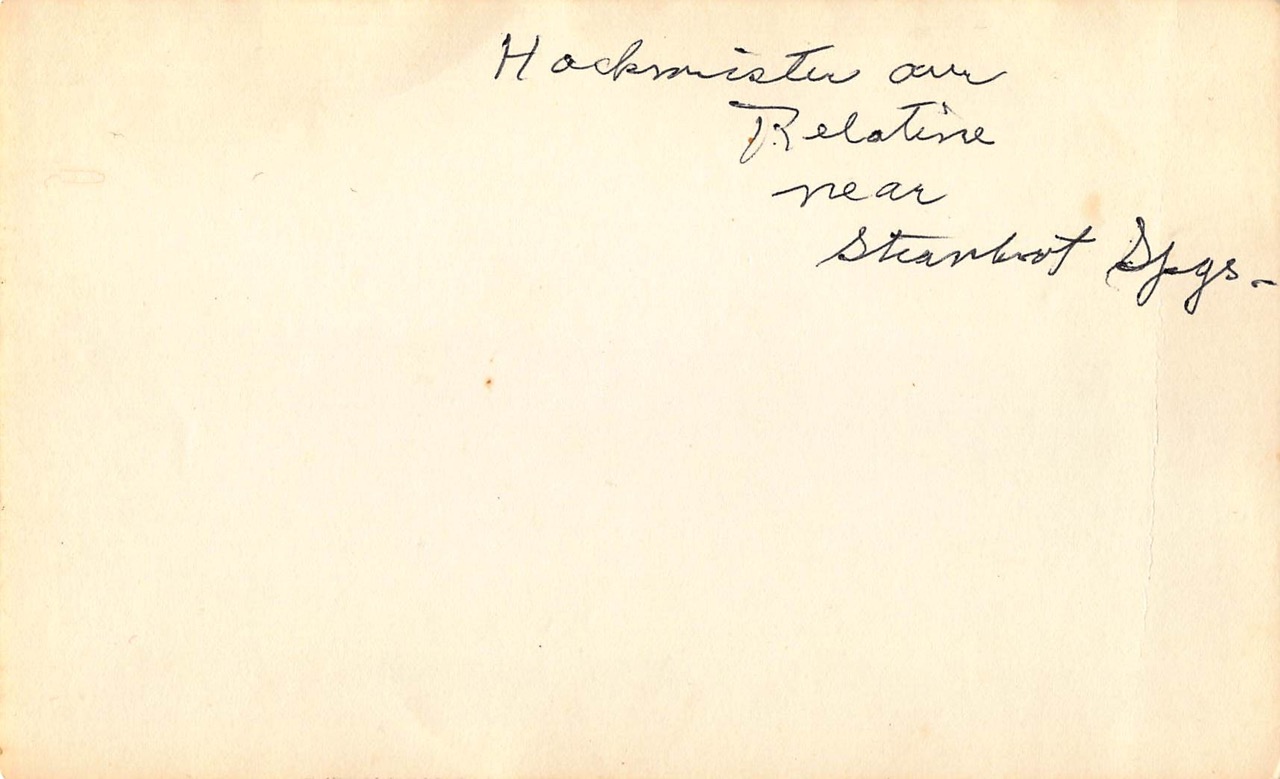 Hockmister our
Relative
near
Steamboat Spgs-